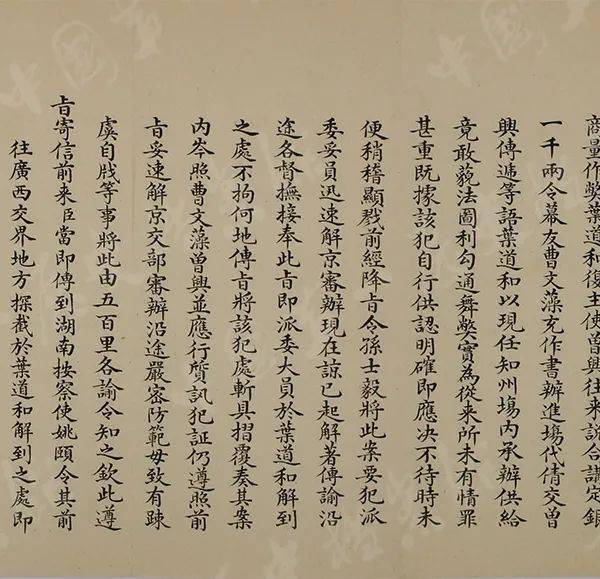 商量作弊葉道和復主使曾興往來說合講定銀
一千兩令幕友曹文藻充作書辦進塲代倩交曾
興傳遞等語葉道和以現任知州塲内承辦供給
竟敢藐法圖利勾通舞弊實為從來所未有情罪
甚重既據該犯自行供認明確即應決不待時未
便稍稽顯戮前經降旨令孫士毅將此案要犯派
委妥員迅速解京審辦現在諒已起解著傳諭沿
途各督撫接奉此旨即派委大員於葉道和解到
之處不拘何地傳旨將該犯處斬具摺覆奏其案
内岑照曹文藻曾興並應行質訊犯証仍遵照前
旨妥速解京交部審辦沿途嚴密防範毋致有踈
虞自戕等事將此由五百里各諭令知之欽此遵
旨寄信前来臣當即傳到湖南按察使姚頤令其前
往廣西交界地方探截於葉道和解到之處即